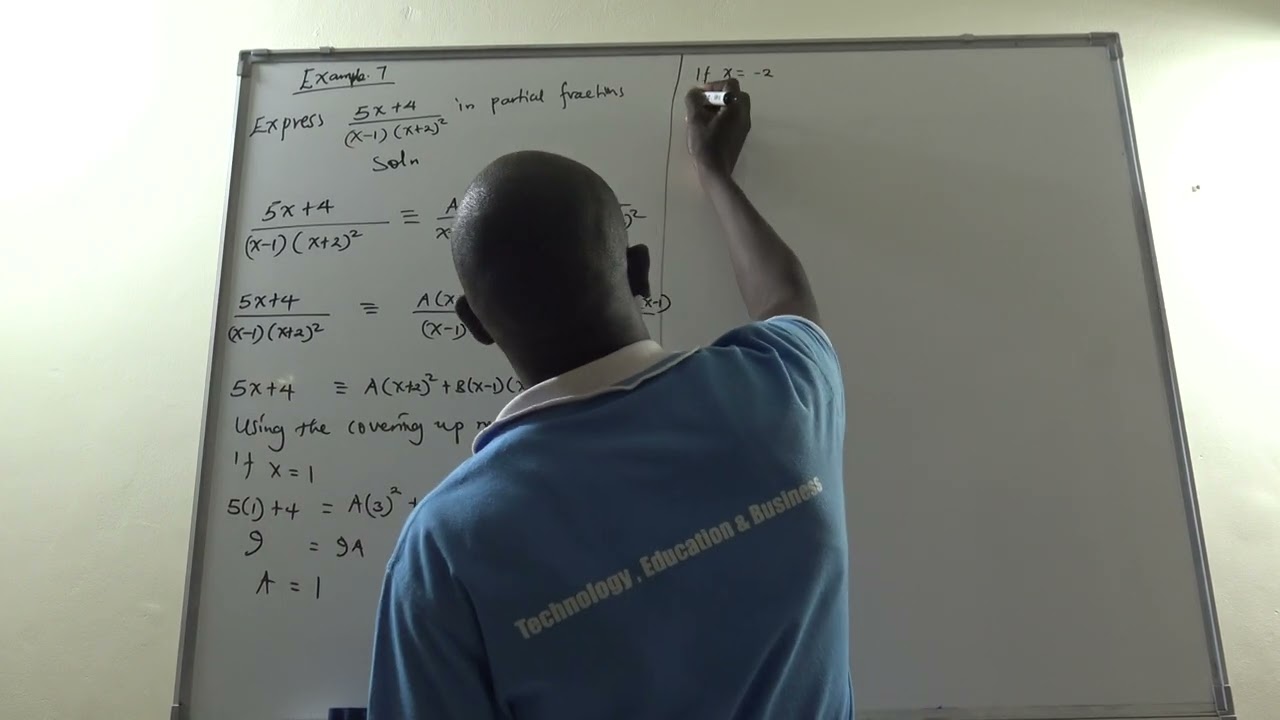 Example. 7
Express (5x+4)/((x-1)(x+2)²) in partial fractions
Soln
(5x+4)/((x-1)(x+2)²) ≡ A/ )²
(5x+4)/((x-1)(x+2)²) ≡ A(x x-1)/(x-1)
5x+4 ≡ A(x+2)² + B(x-1)(
Using the covering up
If x = 1
5(1)+4 = A(3)² +
9 = 9A
A = 1
If x = -2
Technology, Education & Business